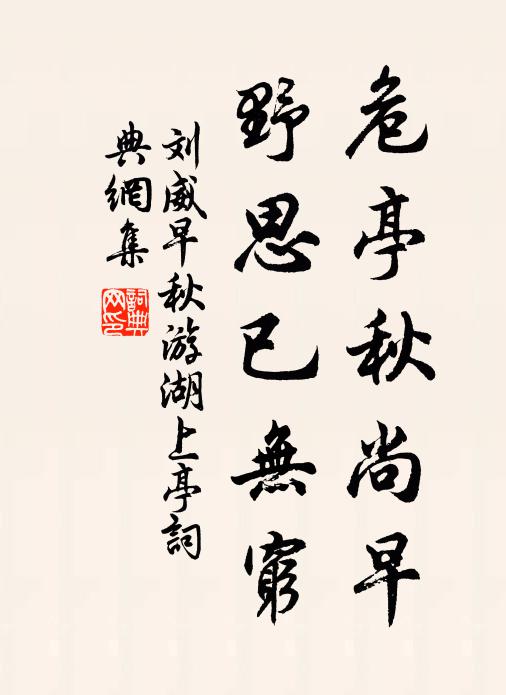 危亭秋尚早
野思已無窮
刘威早秋游湖上亭詞
典網集
詞典
网印